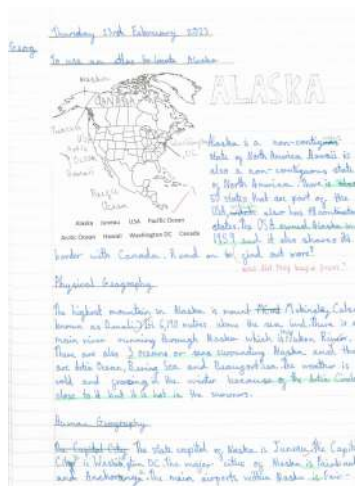 Thursday 23rd February 2023
Geog
To use an atlas to locate Alaska
ALASKA
Alaska
CANADA
Juneau
USA
Hawaii
Pacific
Ocean
DC
Alaska Juneau USA Pacific Ocean
Arctic Ocean Hawaii Washington DC Canada
Alaska is a non-contiguous
state of North America. Hawaii is
also a non-contiguous state
of North America. There is
50 states that are part of the
USA, also has 48
states. The USA owned Alaska in
1959 and it also shares its
border with Canada. Read on to find out more!
Who did they buy it from?
Physical Geography
The highest mountain in Alaska is mount Mckinley, (also
known as Denali) 6,190 metres above the sea level. There is a
main river running through Alaska which is Yukon River.
There are also 3 oceans or seas surrounding Alaska and they
are Artic Ocean, Bering Sea and Beaufort sea. The weather is
cold and freezing in the winter because of the Artic Circle
close to it but it is hot in the summers.
Human Geography
The Capital City The state capital of Alaska is Juneau. The Capital
City is Washington DC. The major cities of Alaska is Fairbanks
and Anchorage. The main airports within Alaska is Fair-